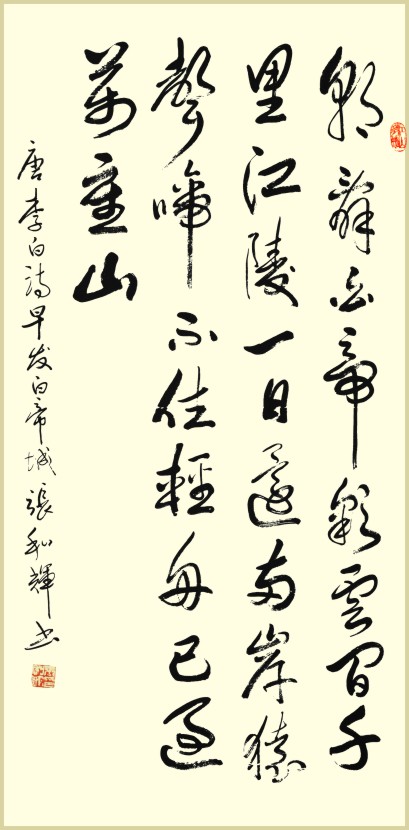 朝辭白帝彩雲間千
里江陵一日還兩岸猿
聲啼不住輕舟已過
萬重山
唐李白詩早发白帝城張和輝书